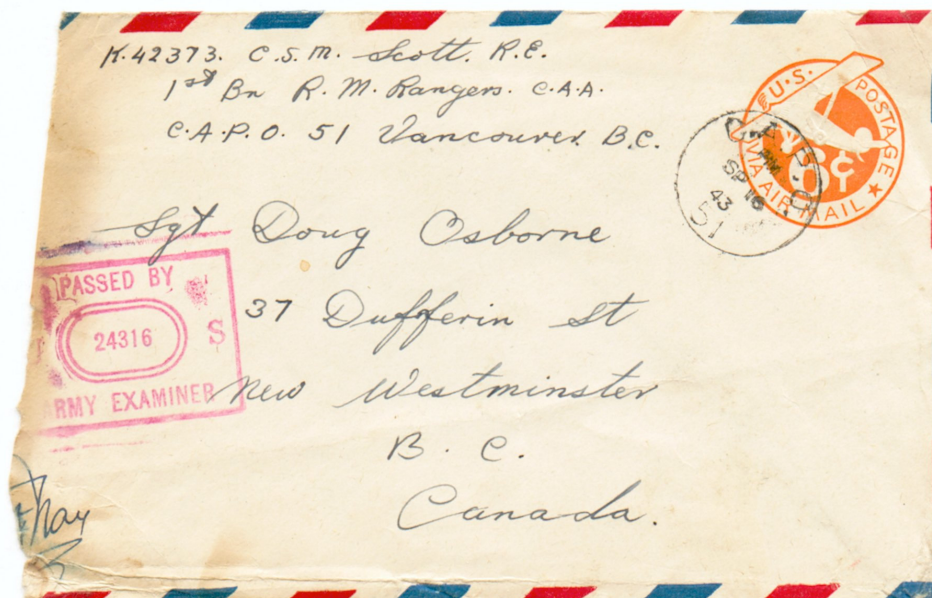 K.42373. C.S.M. Scott. R.E.
1st Bn R.M. Rangers. C.A.A.
C.A.P.O. 51 Vancouver B.C.
U.S. POSTAGE
VIA AIR MAIL
6¢
PM
SP 16
43
51
Sgt Doug Osborne
37 Dufferin St
New Westminster
B.C.
Canada.
PASSED BY
24316
S
ARMY EXAMINER